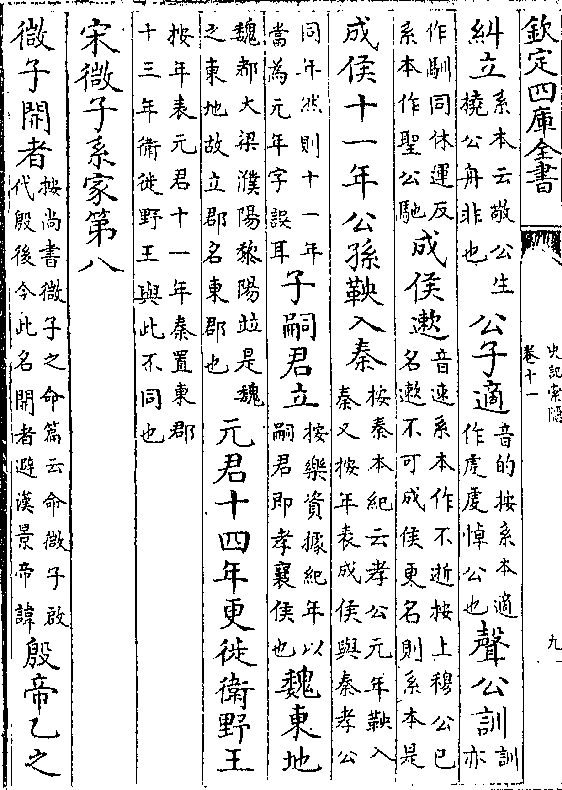 欽定四庫全書
史記索隱
卷十一
九
糾立系本云敬公生
橈公舟非也公子適音的按系本適
作虔虔悼公也聲公訓訓亦
作馴同休運反
系本作聖公馳成侯遬音速系本作不逝按上穆公已
名遬不可成侯更名則系本是
成侯十一年公孫鞅入秦按秦本紀云孝公元年鞅入
秦又按年表成侯與秦孝公
同年然則十一年
當為元年字誤耳子嗣君立按樂資據紀年以
嗣君即孝襄侯也魏東地
魏都大梁濮陽黎陽竝是魏
之東地故立郡名東郡也元君十四年更徙衛野王
按年表元君十一年秦置東郡
十三年衛徙野王與此不同也
宋微子系家第八
微子開者按尚書微子之命篇云命微子啟
代殷後今此名開者避漢景帝諱殷帝乙之